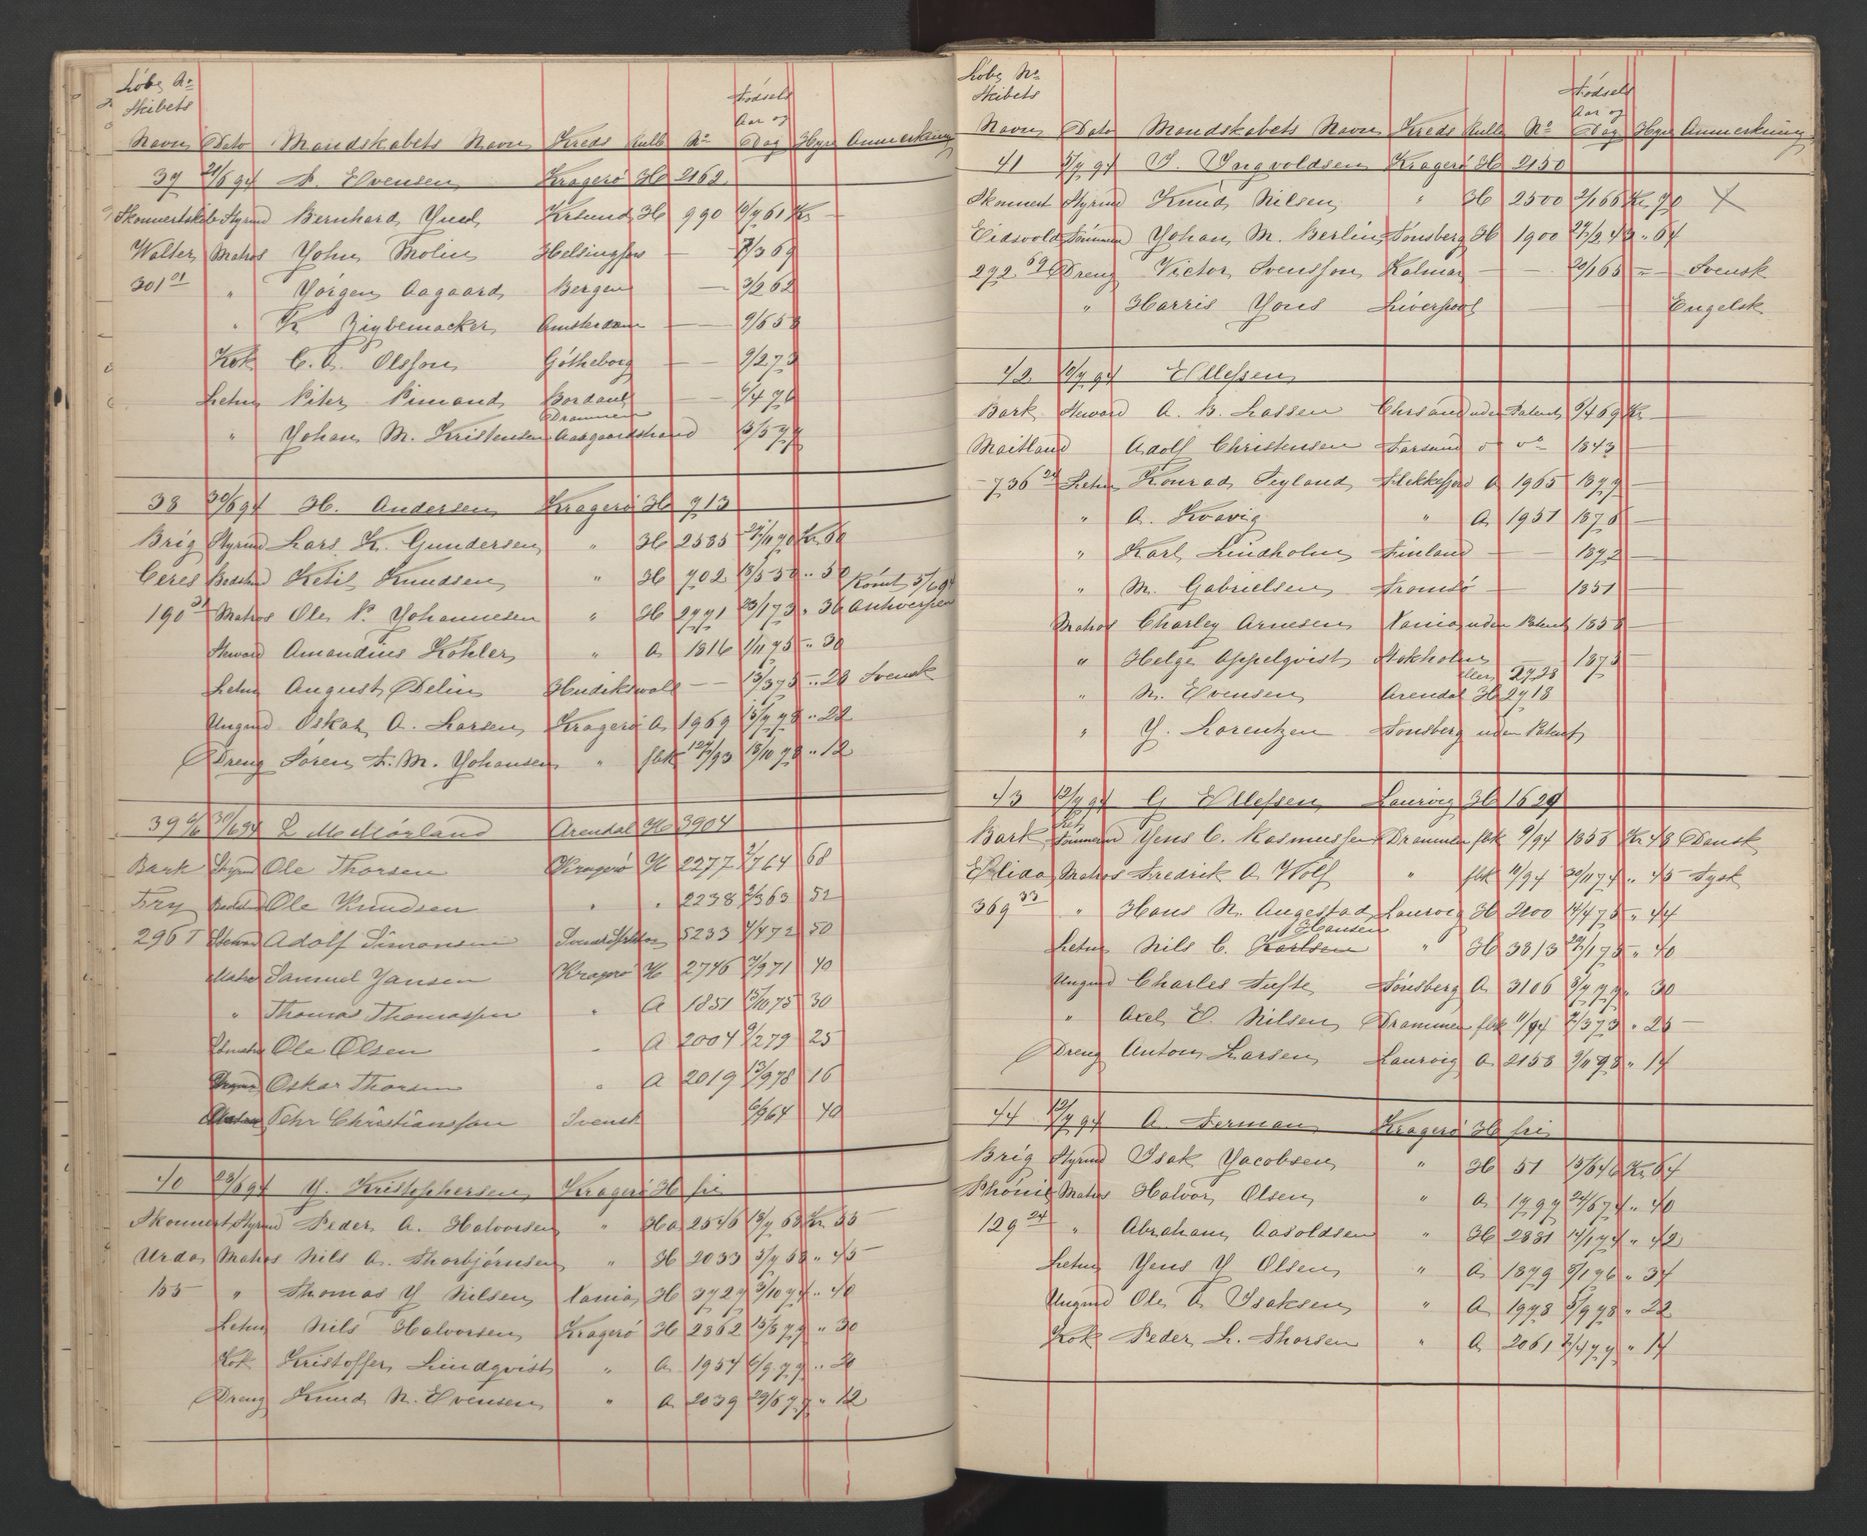 Løbe No
Skibets
Navn Dato Mandskabets Navn Kreds Rulle No Fødsels Aar og Dag Hyre Anmerkning
37 21/6 94 Evensen Kragerø H 2162
Skonnertskib Styrmd Bernhard Krsund H 990 61 Kr —
Walter Matros John Molin Helsingfors — 7/3 69
301 01 " Jørgen Aagaard Bergen — 3/2 62
" K Amsterdam — — 9/6 58
Kok C. A. Olsson Gøtheborg — — 9/2 73
Letm Piter — — 6/4 76
Drammen
" Johan M. Kristensen Aasgaardstrand 13/5 77
38 30/6 94 H. Andersen Kragerø H 713
Brig Styrmd Lars K. Gundersen " H 2535 27/11 70 Kr 60
Ceres Bedstmd Ketil Knudsen " H 702 18/5 50 " 50 Rømt 5/6 94
190 31 Matros Ole P. Johannesen " H 2771 23/1 73 " 36 Antverpen
Steward Amandius Køhler " A 1816 1/11 75 " 30
Letm August Delin Hudiksvall — — 13/3 75 " 28 Svensk
Ungmd Oskar A. Larsen Kragerø A 1969 15/7 78 " 22
Dreng Søren F. M. Johansen " fbk 93 18/10 78 " 12
39 30/6 94 L M Mørland Arendal H 3904
Bark Styrmd Ole Thorsen Kragerø H 2277 2/7 64 68
Bedstmd Ole Knudsen " " 2238 2/3 63 52
296 T Steward Adolf Simonsen 5233 4/4 72 50
Matros Samuel Jansen Kragerø H 2746 7/9 71 40
" Thomas Thomassen " A 1851 15/10 75 30
Letmatros Ole Olsen " A 2004 9/2 79 25
Oskar Thorsen " A 2019 13/9 78 16
Pehr Christiansson Svensk 6/9 64 40
40 23/6 94 J. Kristophersen Kragerø H fri
Skonnert Styrmd Peder A. Halvorsen " Ha 2546 18/7 63 Kr 55
Urda Matros Nils A. Thorbjørnsen " H 2033 5/7 58 " 45
155 " Thomas J Nilsen Xania H 3727 3/10 74 " 40
Letm Nils Halvorsen Kragerø H 2862 15/3 77 " 30
Kok Kristoffer Lindqvist " A 1954 6/9 77 " 20
Dreng Knud N. Evensen " A 2039 29/6 77 " 12
Løbe No
Skibets
Navn Dato Mandskabets Navn Kreds Rulle No Fødsels Aar og Dag Hyre Anmerkning
41 5/7 94 I. Ingvoldsen Kragerø H 2150
Skonnert Styrmd Knud Nilsen " H 2500 2/1 66 Kr 70 X
Eidsvold Tømmermd Johan M. Berlin Tønsberg H 1900 24/2 43 " 64
292 69 Dreng Victor Svensson Kalmar — — 20/1 65 " — Svensk
" Harris Jons Liverpool — — Engelsk
42 10/7 94 Ellefsen
Bark Steward A. B. Lassen Chrsand uden Patent 6/4 69 Kr —
Maitland Adolf Christensen Farsund 1843 —
736 24 Letm Konrad Fegland Flekkefjord A 1965 1877 —
" A. Kvavig " A 1951 1876 —
" Karl Lindholm Finland — — 1872 —
" M. Gabrielsen Tromsø — 1851 —
Matros Charley Arnesen Xania uden Patent 1858 —
" Helge Appelqvist Stokholm — 1875 —
eller 2728
" N. Evensen Arendal H 2718
" J. Lorentzen Tønsberg uden Patent
43 12/7 94 G Ellefsen Laurvig H 1629
Bark Tømmermd Jens C. Rasmussen Drammen fbk 9/94 1858 Kr 48 Dansk
Elida Matros Fredrik A Wolf " fbk 11/94 30/11 74 " 45 Tysk
369 33 " Hans N. Angestad Laurvig H 2100 14/4 75 " 44
Hansen
Letm Nils C. Karlsen " H 3813 22/1 75 " 40
Ungmd Charles Tufte Tønsberg A 3106 8/7 77 " 30
" Axel E. Nilsen Drammen fbk 11/94 2/3 73 " 25 —
Dreng Anton Larsen Laurvig A 2158 9/11 78 " 14
44 12/7 94 A. Ferman Kragerø H fri
Brig Styrmd Isak Jacobsen " H 51 15/6 46 Kr 64
Phønix Matros Halvor Olsen " A 1797 24/6 74 " 40
129 24 " Abraham Aasoldsen " H 2831 14/1 74 " 42
Letm Jens J Olsen " A 1879 8/1 76 " 34
Ungmd Ole A Isaksen " A 1978 5/9 78 " 22
Kok Peder L. Thorsen " A 2061 2/4 77 " 14